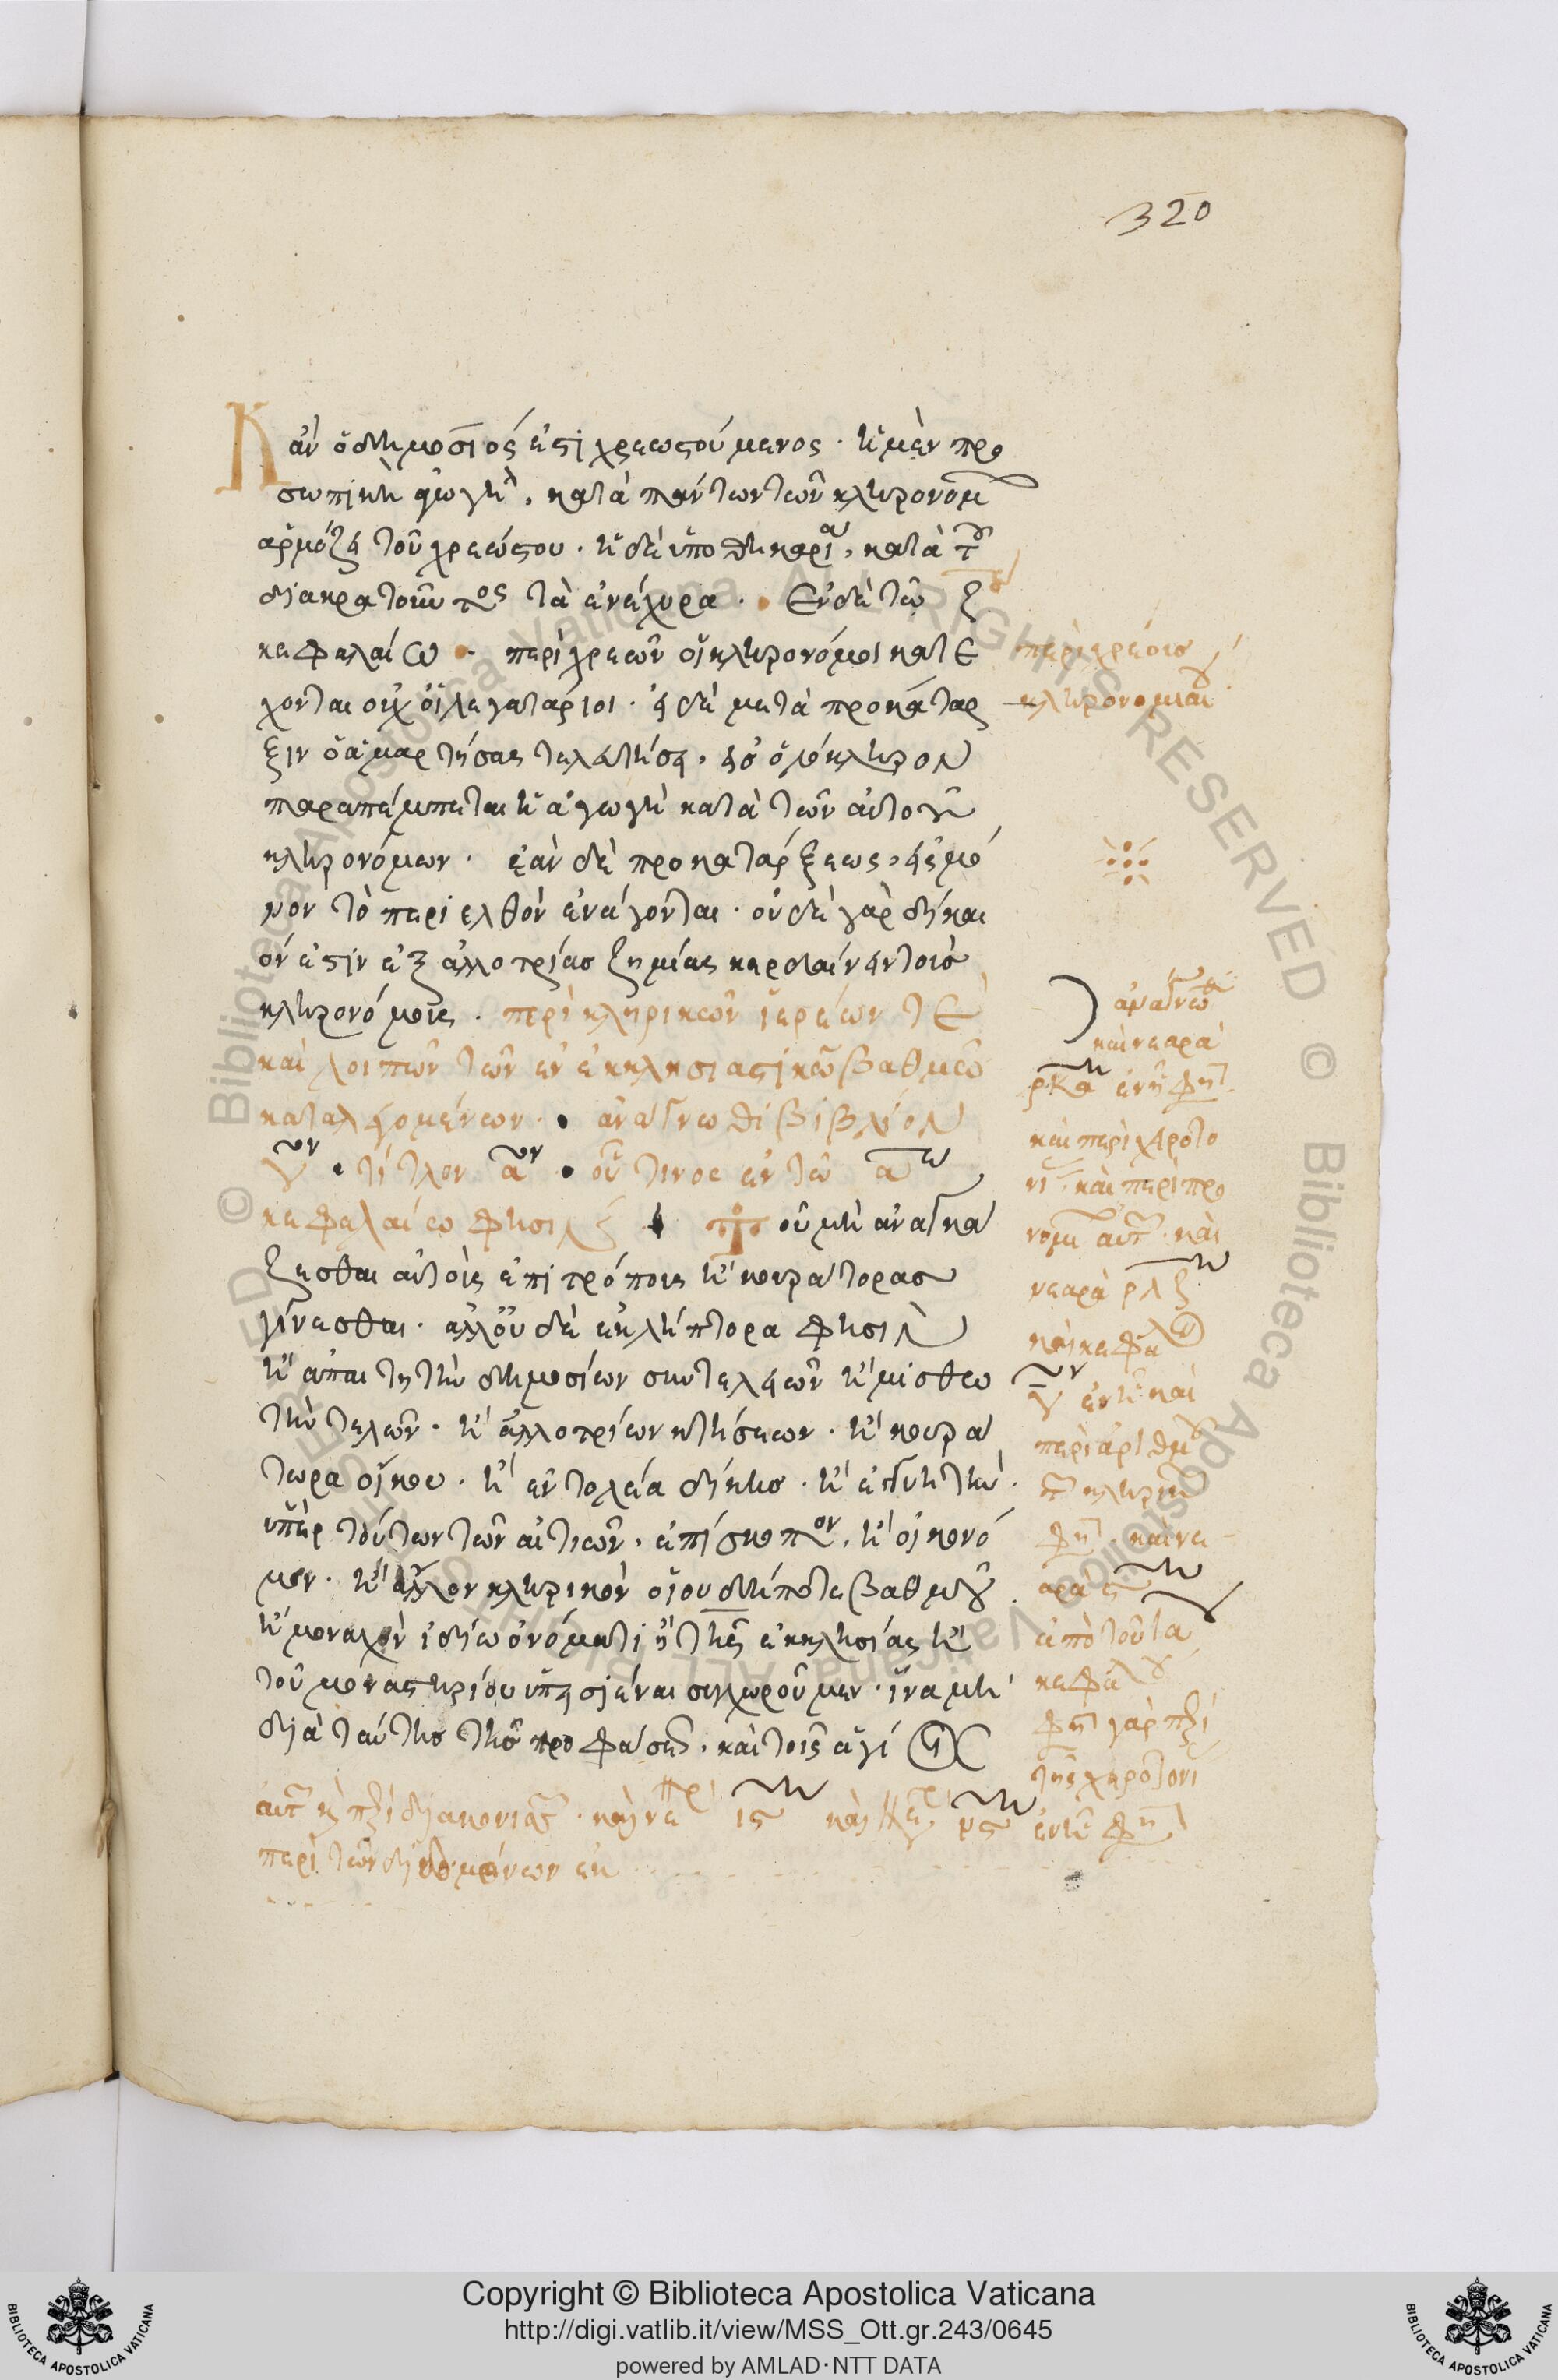 320
Κἀν ὁ δημοσιός ἐστι χρεωστούμενος · ἡ μὲν προ
σωπικὴ ἀγωγὴ, κατὰ πάντων τῶν κληρονόμ
ἁρμόζει τοῦ χρεώστου · ἡ δὲ ὑποθηκαρία, κατὰ τοῦ
διακρατοῦντος τὰ ἐνέχυρα · Ἐν δὲ τῶ ζ
κεφαλαίω · περὶ χρεῶν οἱ κληρονόμοι κατε
χονται οὐχ οἱ λεγατάριοι · εἰ δὲ μετὰ προκάταρ
ξιν ὁ ἁμαρτήσας τελευτήσει, εἰσ ὁλόκληρον
παραπέμπεται ἡ ἀγωγὴ κατὰ τῶν αὐτοῦ
κληρονόμων · ἐὰν δὲ προκατάρξεως, εἰς μό
νον τὸ περιελθὸν ἐνάγονται · οὐδὲ γὰρ δίκαι
όν ἐστιν ἐξ ἀλλοτρίασ ζημίας κερδαίνειν τοὺσ
κληρονόμοις · περὶ κληρικῶν ἱερέων τε
καὶ λοιπῶν τῶν ἐν ἐκκλησιαστικῶ βαθμῶ
καταλεγομένων · ἀνάγνωθι βιβλίον
γον · τίτλον αον · οὗ τινος ἐν τῶ αω
κεφαλαίω φησιν οὐ μὴ ἀναγκά
ζεσθαι αὐτοὶς ἐπιτρόποις ἢ κουράτορασ
γίνεσθαι · ἀλλ' οὐδὲ ἐκλήπτορα φησιν
ἢ ἀπαιτητὴν δημοσίων συντελειῶν ἢ μισθω
τὴν τελῶν · ἢ ἀλλοτρίων κτήσεων · ἢ κουρά
τωρα οἴκου · ἢ ἐντολέα δίκησ · ἢ ἐγγυητὴν ·
ὑπὲρ τούτων τῶν αἰτιῶν, ἐπίσκοπον, ἢ οἰκονό
μον · ἢ ἄλλον κληρικὸν οἵου δήποτε βαθμοῦ
ἢ μοναχὸν ἰδίω ὀνόματι ἢ τῆς ἐκκλησίας ἢ
τοῦ μοναστηρίου ὑπεισιέναι συγχωροῦμεν · ἵνα μὴ
διὰ ταύτησ τῆσ προφάσεως, καὶ τοῖς ἁγί
περὶ τῶν διδομένων ἐκ
περὶ χρέουσ
κληρονομιαίου
ἀνάγνωθι
καὶ νεαρὰ
ρκα ἐν ἧ φη
καὶ περὶ χειροτο
νι καὶ περὶ προ
νομι αὐτ · καὶ
νεαρὰ ρλζ
καὶ κεφαλ
γον ἐν ἧ καὶ
περὶ ἀριθμοῦ
τ κληρικ
φη · καὶ νε
αρὰ ς
ἀπὸ τοῦ τα
κεφαλ
φη γὰρ περὶ
τῆς χειροτονι
ἐν ἧ φη
Copyright © Biblioteca Apostolica Vaticana
http://digi.vatlib.it/view/MSS_Ott.gr.243/0645
powered by AMLAD·NTT DATA
BIBLIOTECA APOSTOLICA VATICANA
BIBLIOTECA APOSTOLICA VATICANA